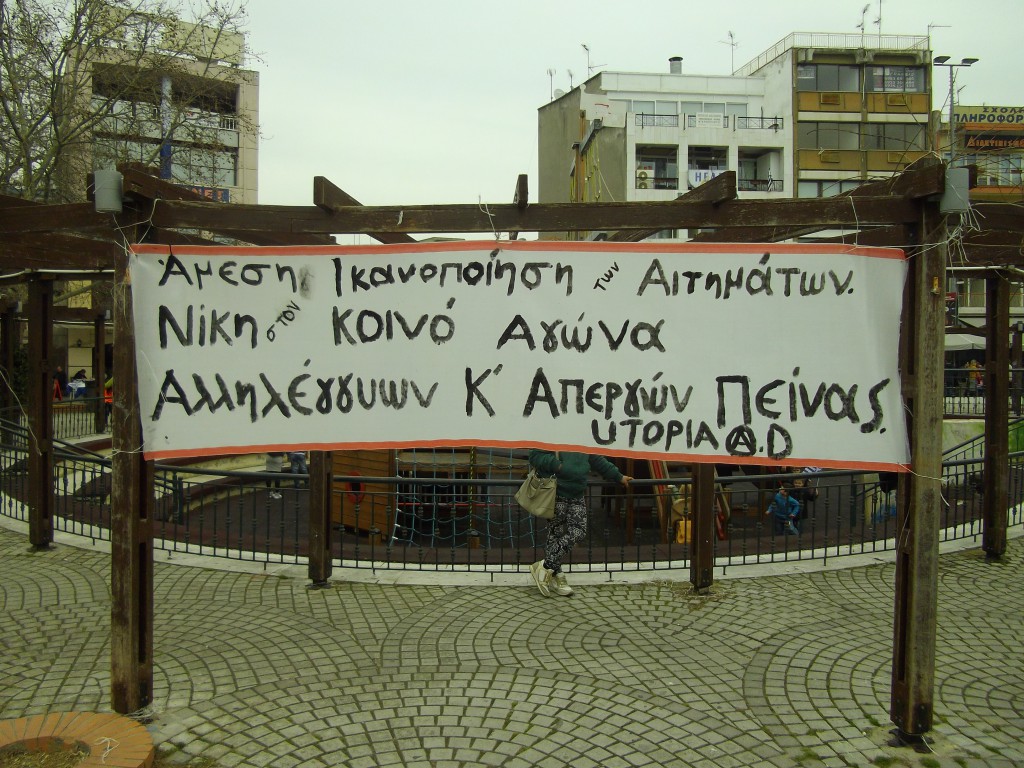 Άμεση Ικανοποίηση των Αιτημάτων.
Νίκη στον κοινό Αγώνα
Αλληλέγγυων Κ' Απεργών Πείνας.
UTOPIA A.D
ΣΧΟΛ
ΠΛΗΡΟΦΟΡ
NET